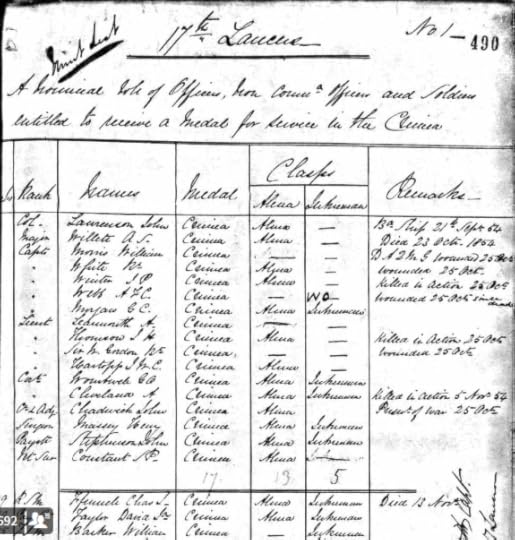 Mint List
17th Lancers
No 1 - 490
A Nominal Role of Officers, Non Commd Officers and Soldiers
entitled to receive a Medal for service in the Crimea
Clasps
Rank Names Medal Alma Inkerman Remarks
Col. Lawrenson John Crimea Alma — Bd Ship 21st Sept 54
Major Willett A S. Crimea Alma — Died 23 Octr 1854
Captn Morris William Crimea — — wounded 25 Oct
" White Crimea Alma — wounded 25 Oct.
" Winter J P Crimea Alma — Killed in Action 25 Oct
" Webb A F C. Crimea — WO wounded 25 Oct since dead
" Morgan G C. Crimea Alma Inkerman
Lieut A. Crimea — —
" Thomson J H Crimea Alma — Killed in Action 25 Oct
" Sir W Gordon Bt Crimea — — wounded 25 Oct
" Hartopp J W C. Crimea Alma —
Cort Wombwell G O Crimea Alma Inkerman
" Cleveland A Crimea Alma Inkerman Killed in Action 5 Novr 54
Adj Chadwick John Crimea Alma — of war 25 Oct
Surgeon Massey Crimea Alma Inkerman
Paymtr Stephenson John Crimea Alma Inkerman
Vet Sur Constant Crimea Alma
17 13 5
Ffennell Chas Crimea Alma Inkerman Died 13 Novr
Taylor David Crimea Alma Inkerman
Barker William Crimea — Inkerman
592